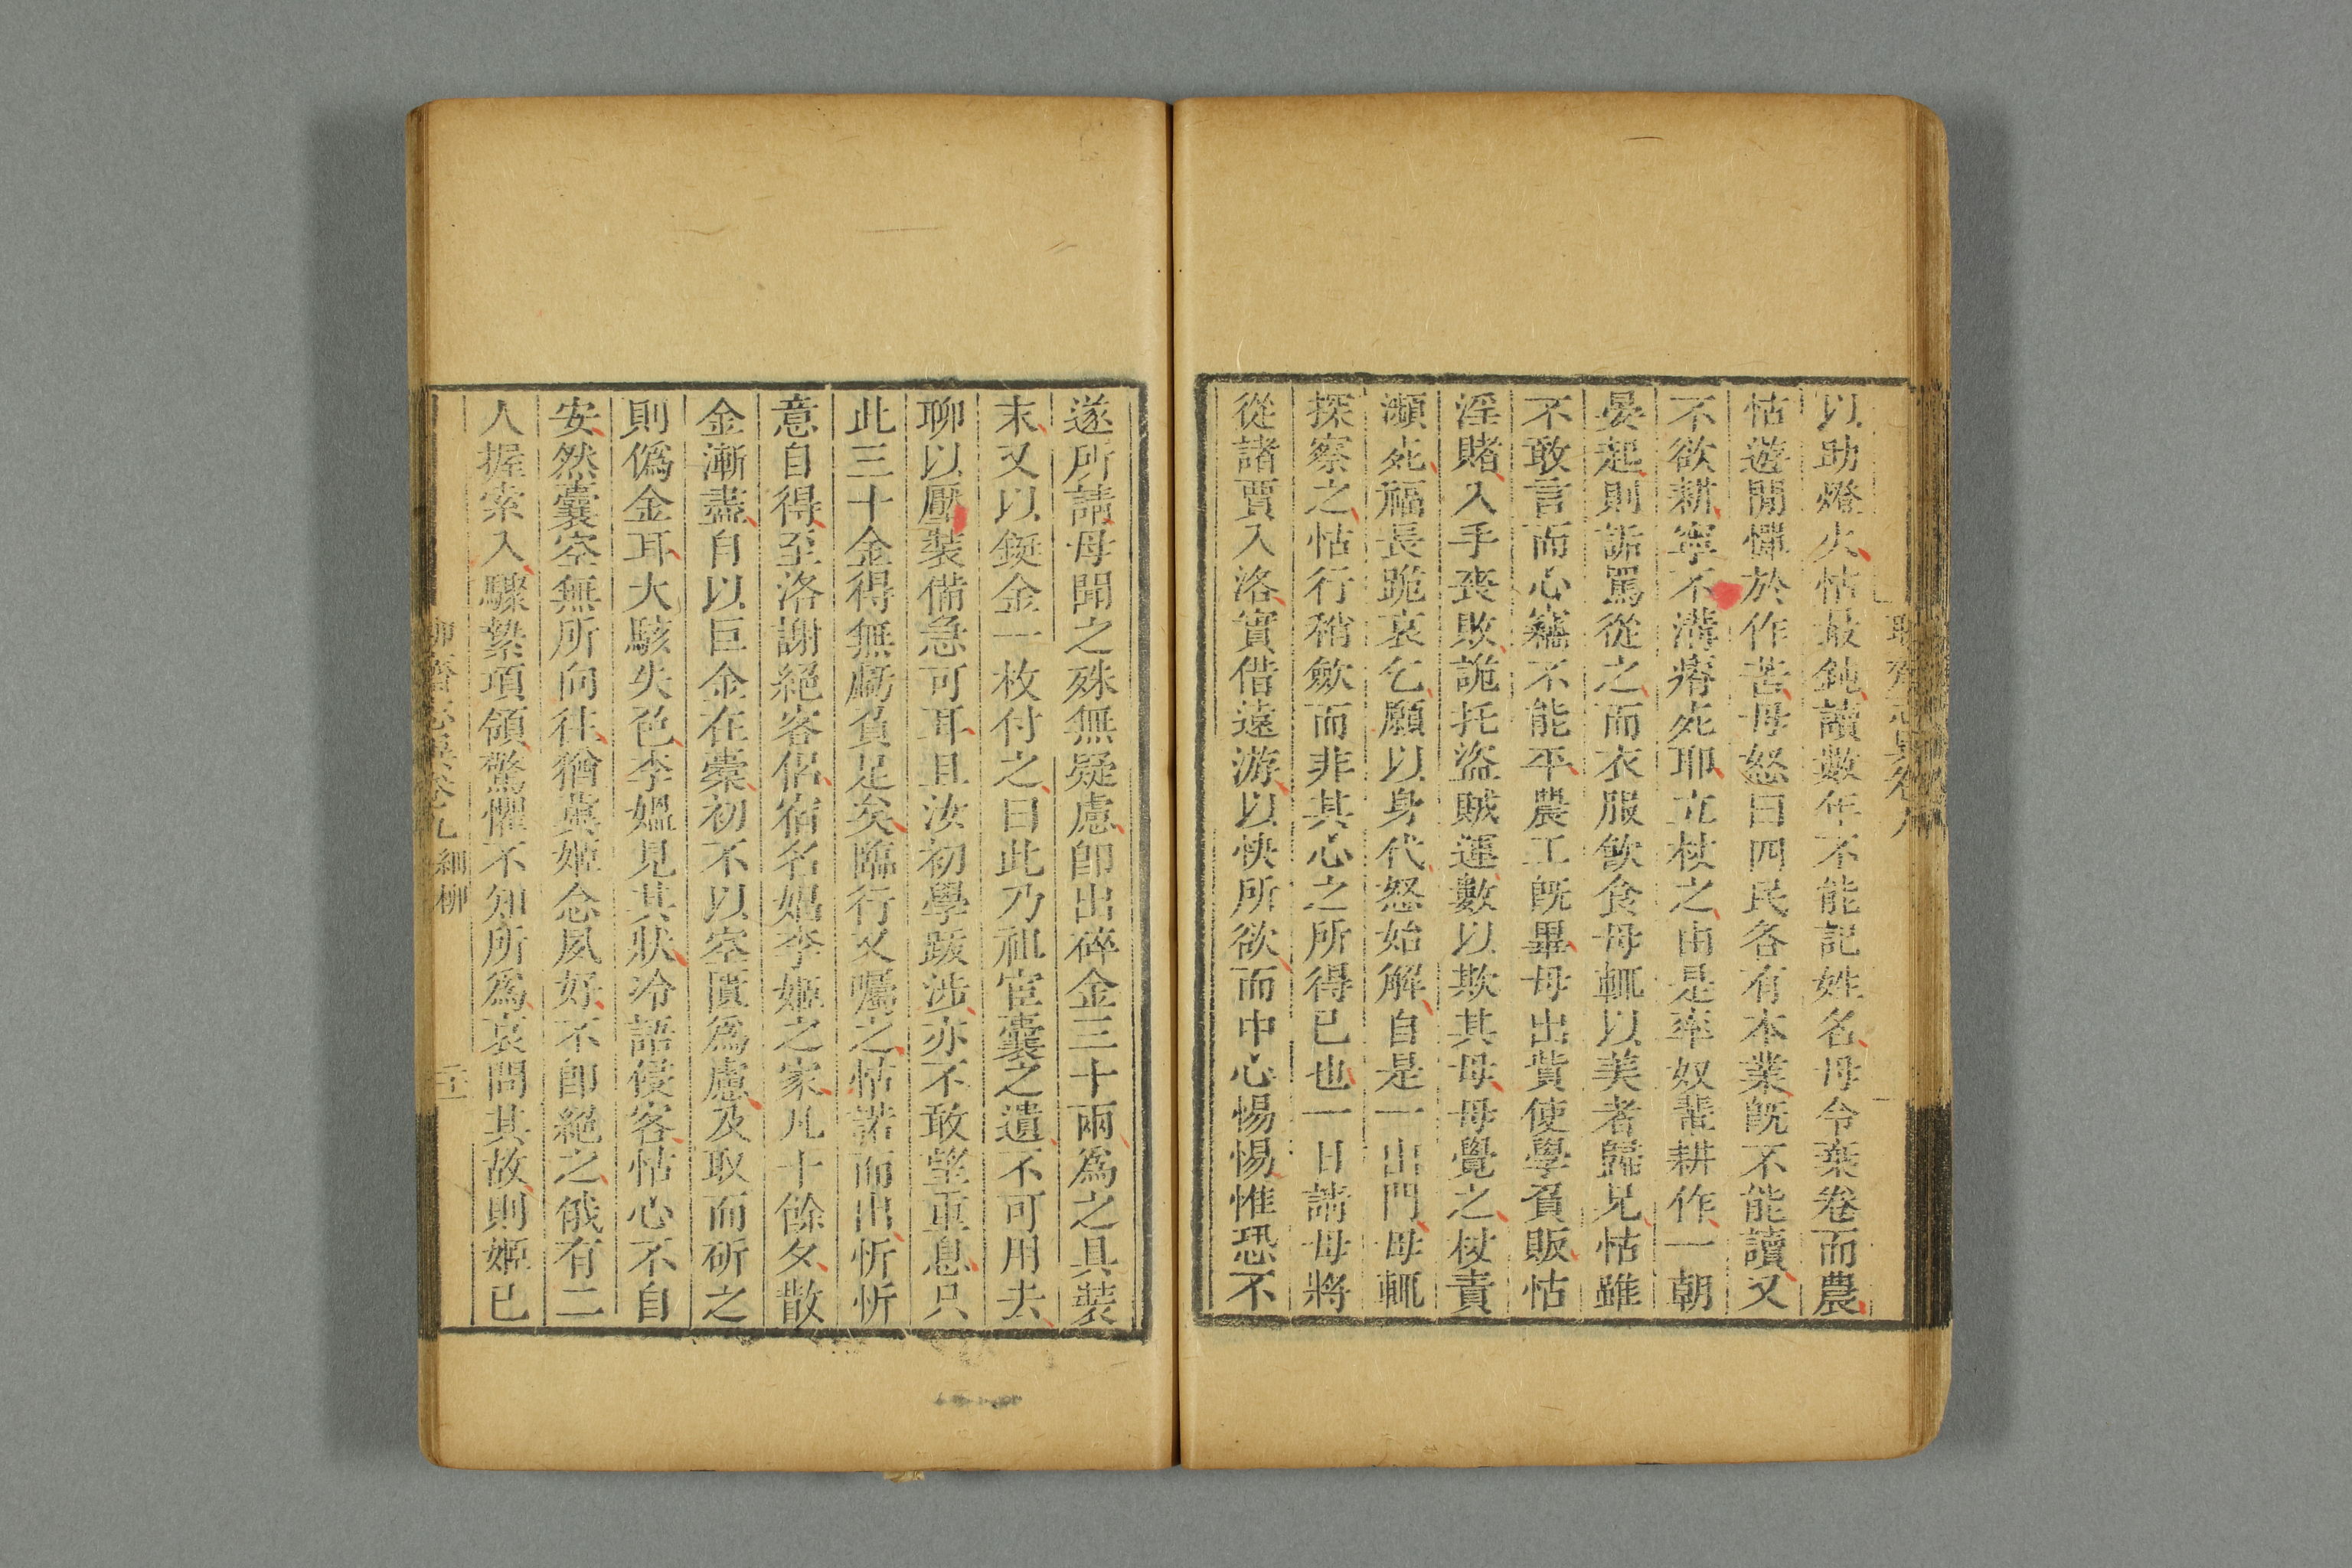 以助燈火怙最鈍讀數年不能記姓名母令棄卷而農
怙遊閒憚於作苦母怒曰四民各有本業既不能讀又
不欲耕寧不溝瘠死耶立杖之由是率奴輩耕作一朝
晏起則詬罵從之而衣服飲食母輒以美者歸兄怙雖
不敢言而心竊不能平農工既畢母出貲使學負販怙
淫賭入手喪敗詭托盜賊運數以欺其母母覺之杖責
瀕死福長跪哀乞願以身代怒始解自是一出門母輒
探察之怙行稍歛而非其心之所得已也一日請母將
從諸賈入洛實借遠游以快所欲而中心惕惕惟恐不
遂所請母聞之殊無疑慮卽出碎金三十兩為之具裝
末又以鋌金一枚付之曰此乃祖宦囊之遺不可用去
聊以壓裝備急可耳且汝初學跋涉亦不敢望重息只
此三十金得無虧負足矣臨行又囑之怙諾而出忻忻
意自得至洛謝絕客侶宿名娼李姬之家凡十餘夕散
金漸盡自以巨金在橐初不以空匱為慮及取而斫之
則偽金耳大駭失色李媼見其狀冷語侵客怙心不自
安然囊空無所向往猶冀姬念夙好不卽絕之俄有二
人握索入驟縶項領驚懼不知所為哀問其故則姬已
細柳